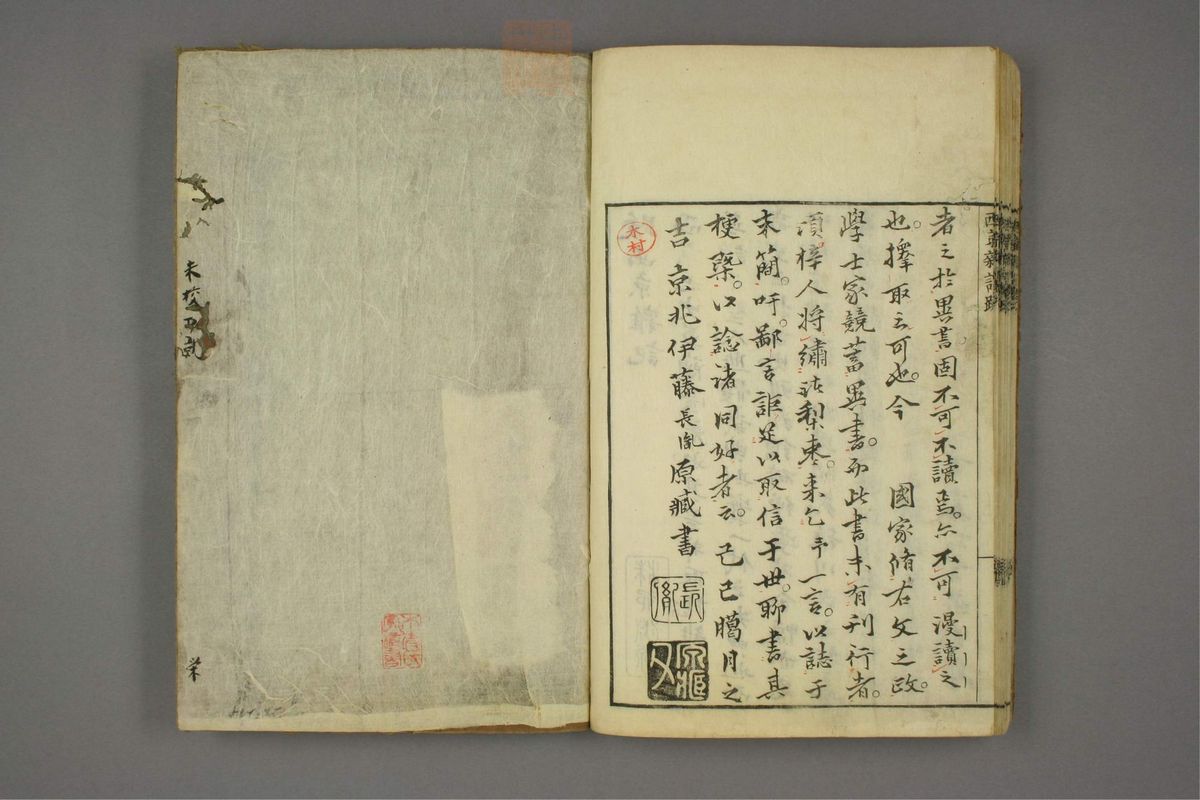 西京雜記跋
者之於異書固不可不讀焉。亦不可漫讀之
也。擇取之可也。今　國家脩右文之政。
學士家競蓄異書。而此書未有刊行者。
頃梓人將繡諸梨棗。来乞予一言。以誌于
末簡。吁。鄙言詎足以取信于世。聊書其
梗槩。以諗諸同好者云。己巳臈月之
吉 京兆伊藤長胤原臧書
長胤
原臧
木村
未校
栄